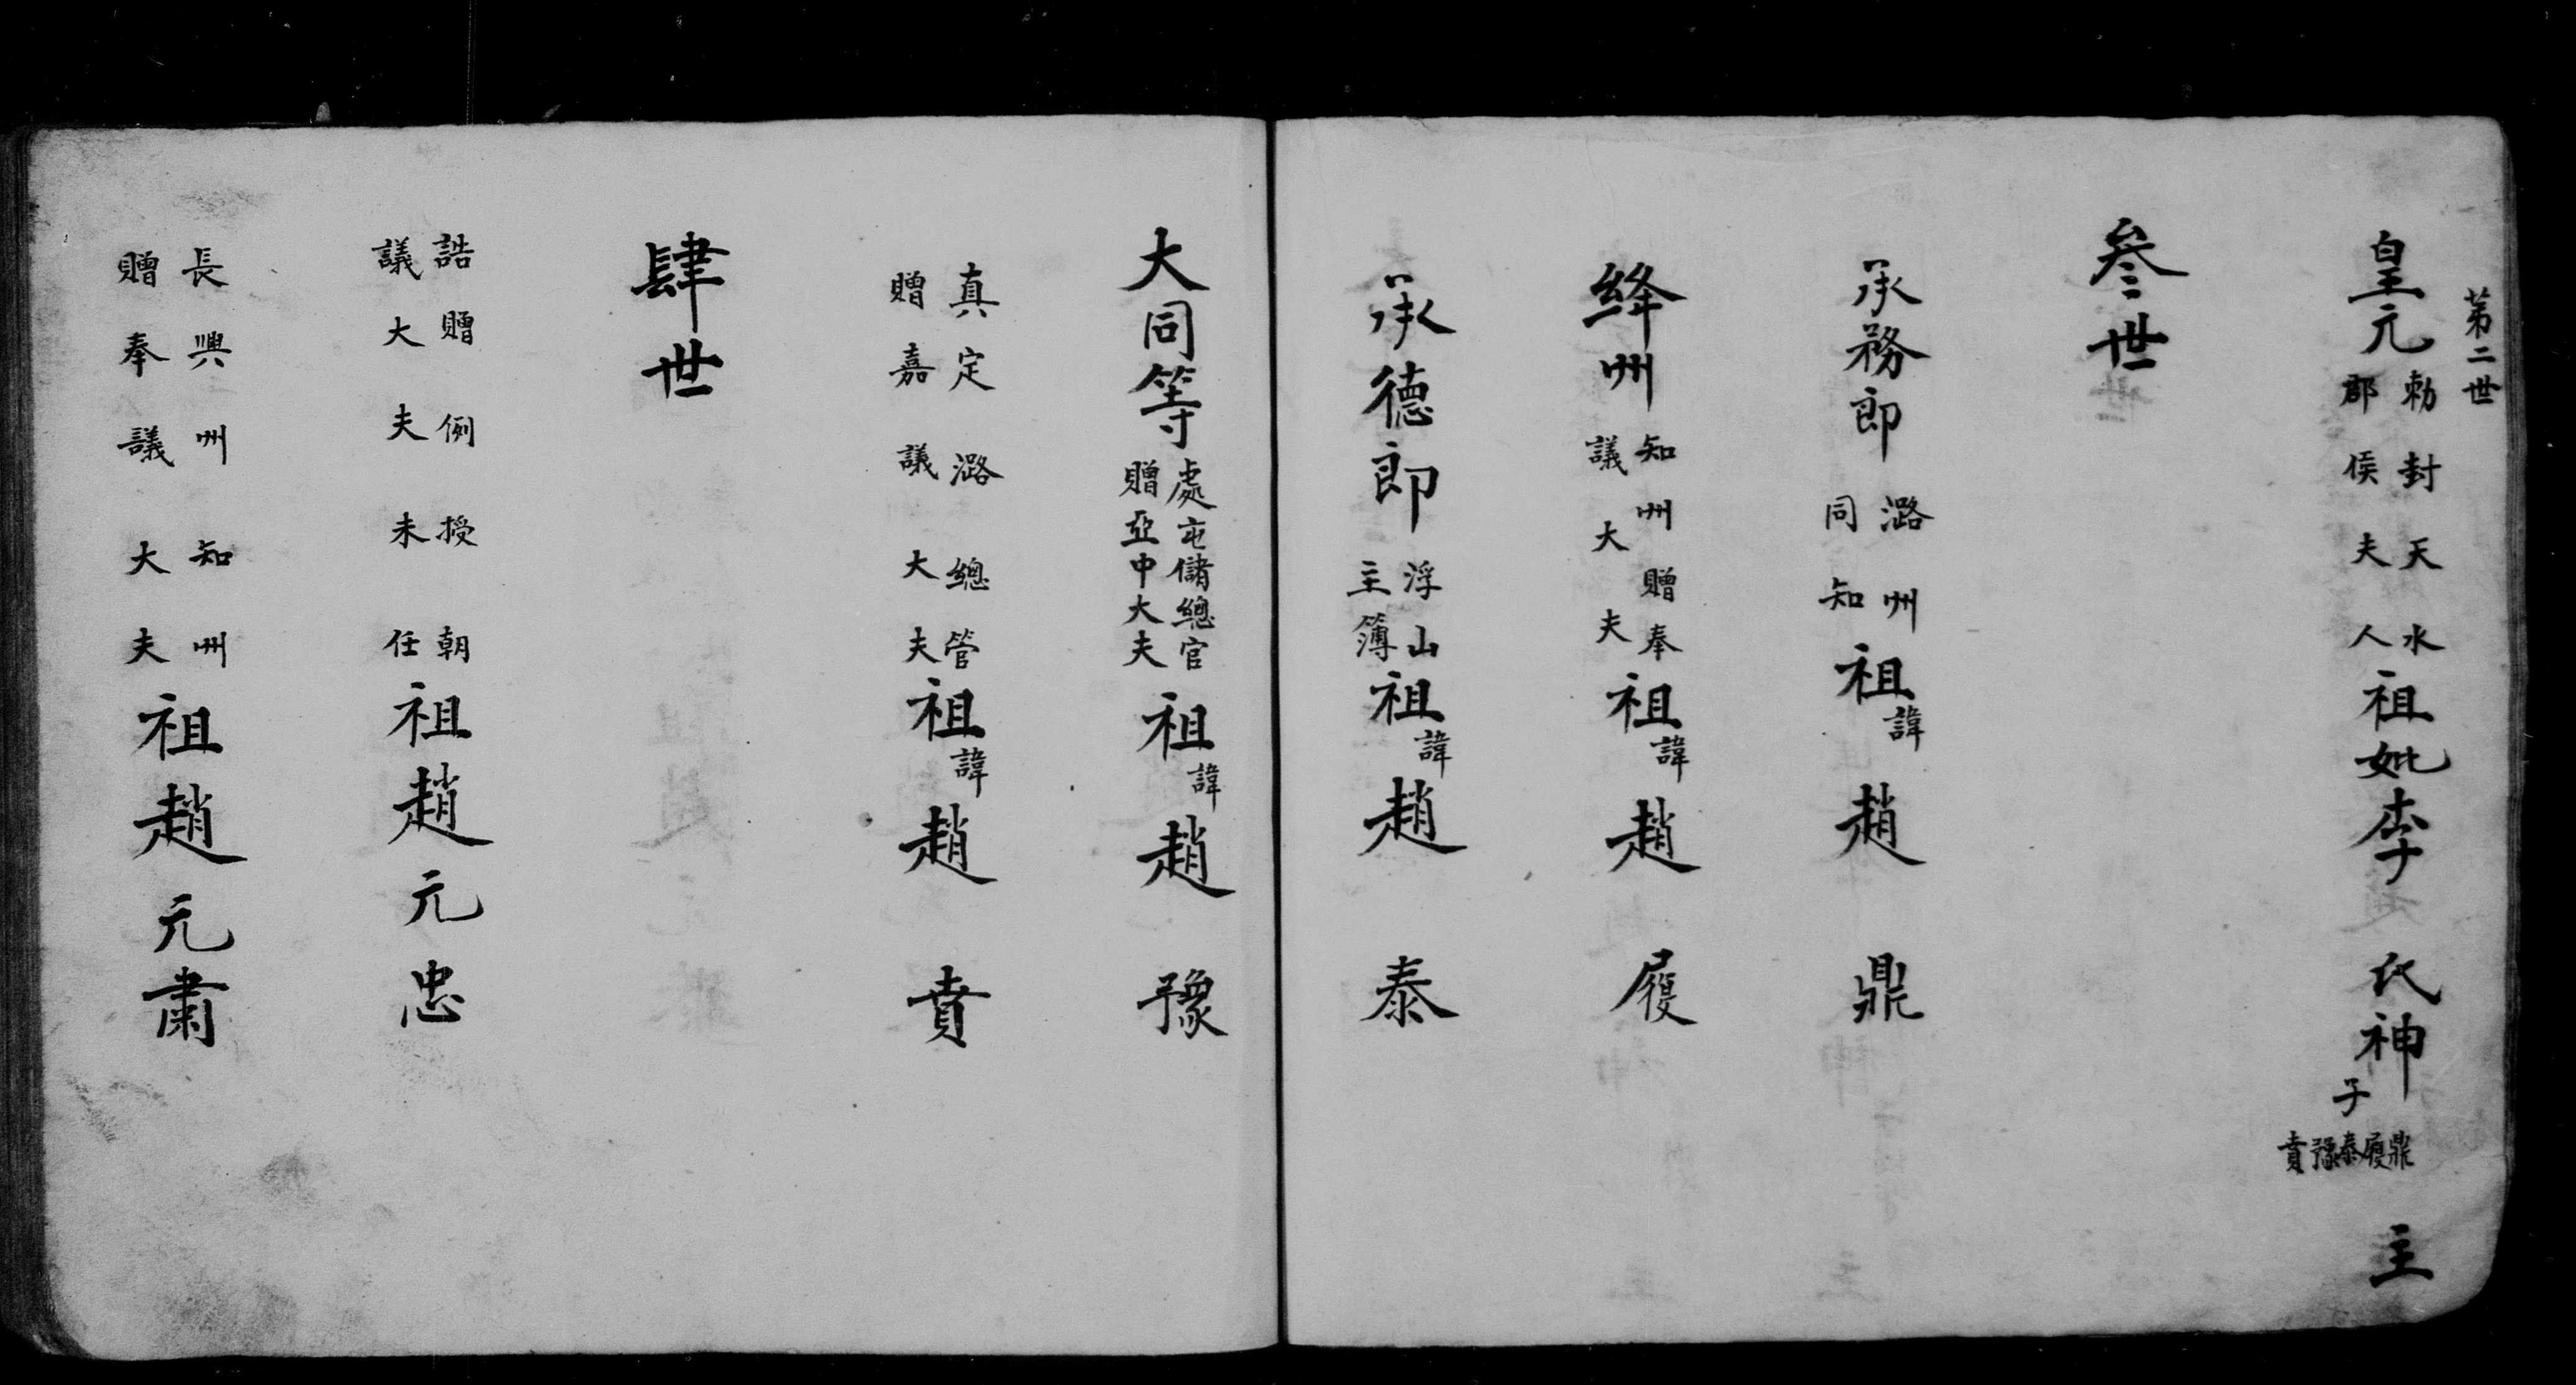 第二世
皇元勅封天水郡侯夫人祖妣李氏神子鼎履泰豫賁主
叄世
承務郎潞州同知祖諱趙鼎
絳州知州贈奉議大夫祖諱趙履
承德郎浮山主簿祖諱趙泰
大同等處屯儲總官贈亞中大夫祖諱趙豫
真定潞總管贈嘉議大夫祖諱趙賁
肆世
誥贈例授朝議大夫未任祖趙元忠
長興州知州贈奉議大夫祖趙元肅